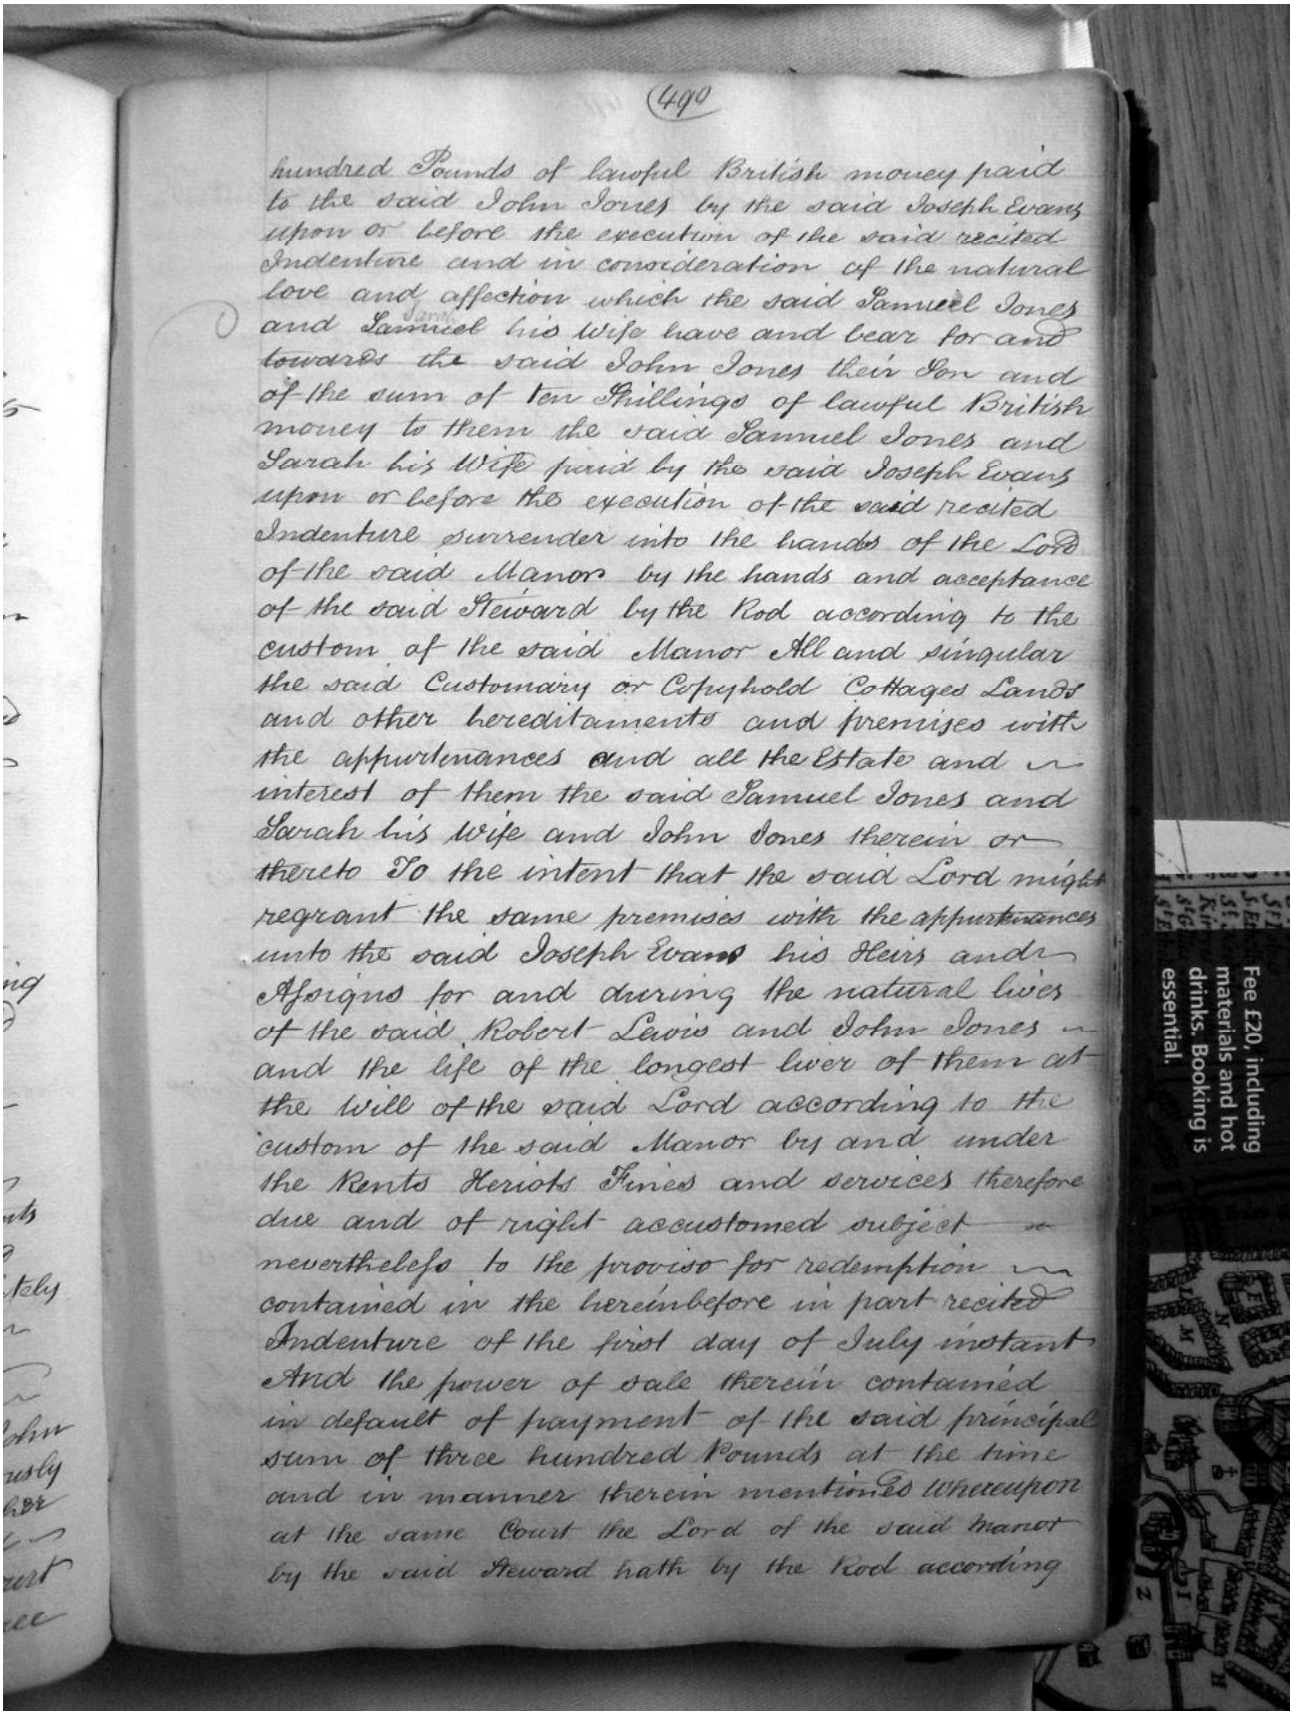 490
hundred Pounds of lawful British money paid
to the said John Jones by the said Joseph Evans
upon or before the execution of the said recited
Indenture and in consideration of the natural
love and affection which the said Samuel Jones
Sarah
and Samuel his Wife have and bear for and
towards the said John Jones their Son and
of the sum of ten Shillings of lawful British
money to them the said Samuel Jones and
Sarah his Wife paid by the said Joseph Evans
upon or before the execution of the said recited
Indenture surrender into the hands of the Lord
of the said Manor by the hands and acceptance
of the said Steward by the Rod according to the
custom of the said Manor All and singular
the said Customary or Copyhold Cottages Lands
and other hereditaments and premises with
the appurtenances and all the Estate and
interest of them the said Samuel Jones and
Sarah his Wife and John Jones therein or
thereto To the intent that the said Lord might
regrant the same premises with the appurtenances
unto the said Joseph Evans his Heirs and
Assigns for and during the natural lives
of the said Robert Lewis and John Jones
and the life of the longest liver of them at
the Will of the said Lord according to the
custom of the said Manor by and under
the Rents Heriots Fines and services therefore
due and of right accustomed subject
nevertheless to the proviso for redemption
contained in the hereinbefore in part recited
Indenture of the first day of July instant
And the power of sale therein contained
in default of payment of the said principal
sum of three hundred Pounds at the time
and in manner therein mentioned Whereupon
at the same Court the Lord of the said Manor
by the said Steward hath by the Rod according
Fee £20, including
materials and hot
drinks. Booking is
essential.